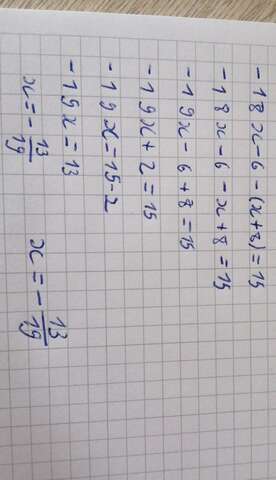 -18x-6-(x+8)=15
-18x-6-x+8=15
-19x-6+8=15
-19x+2=15
-19x=15-2
-19x=13
x=-13/19 x=-13/19